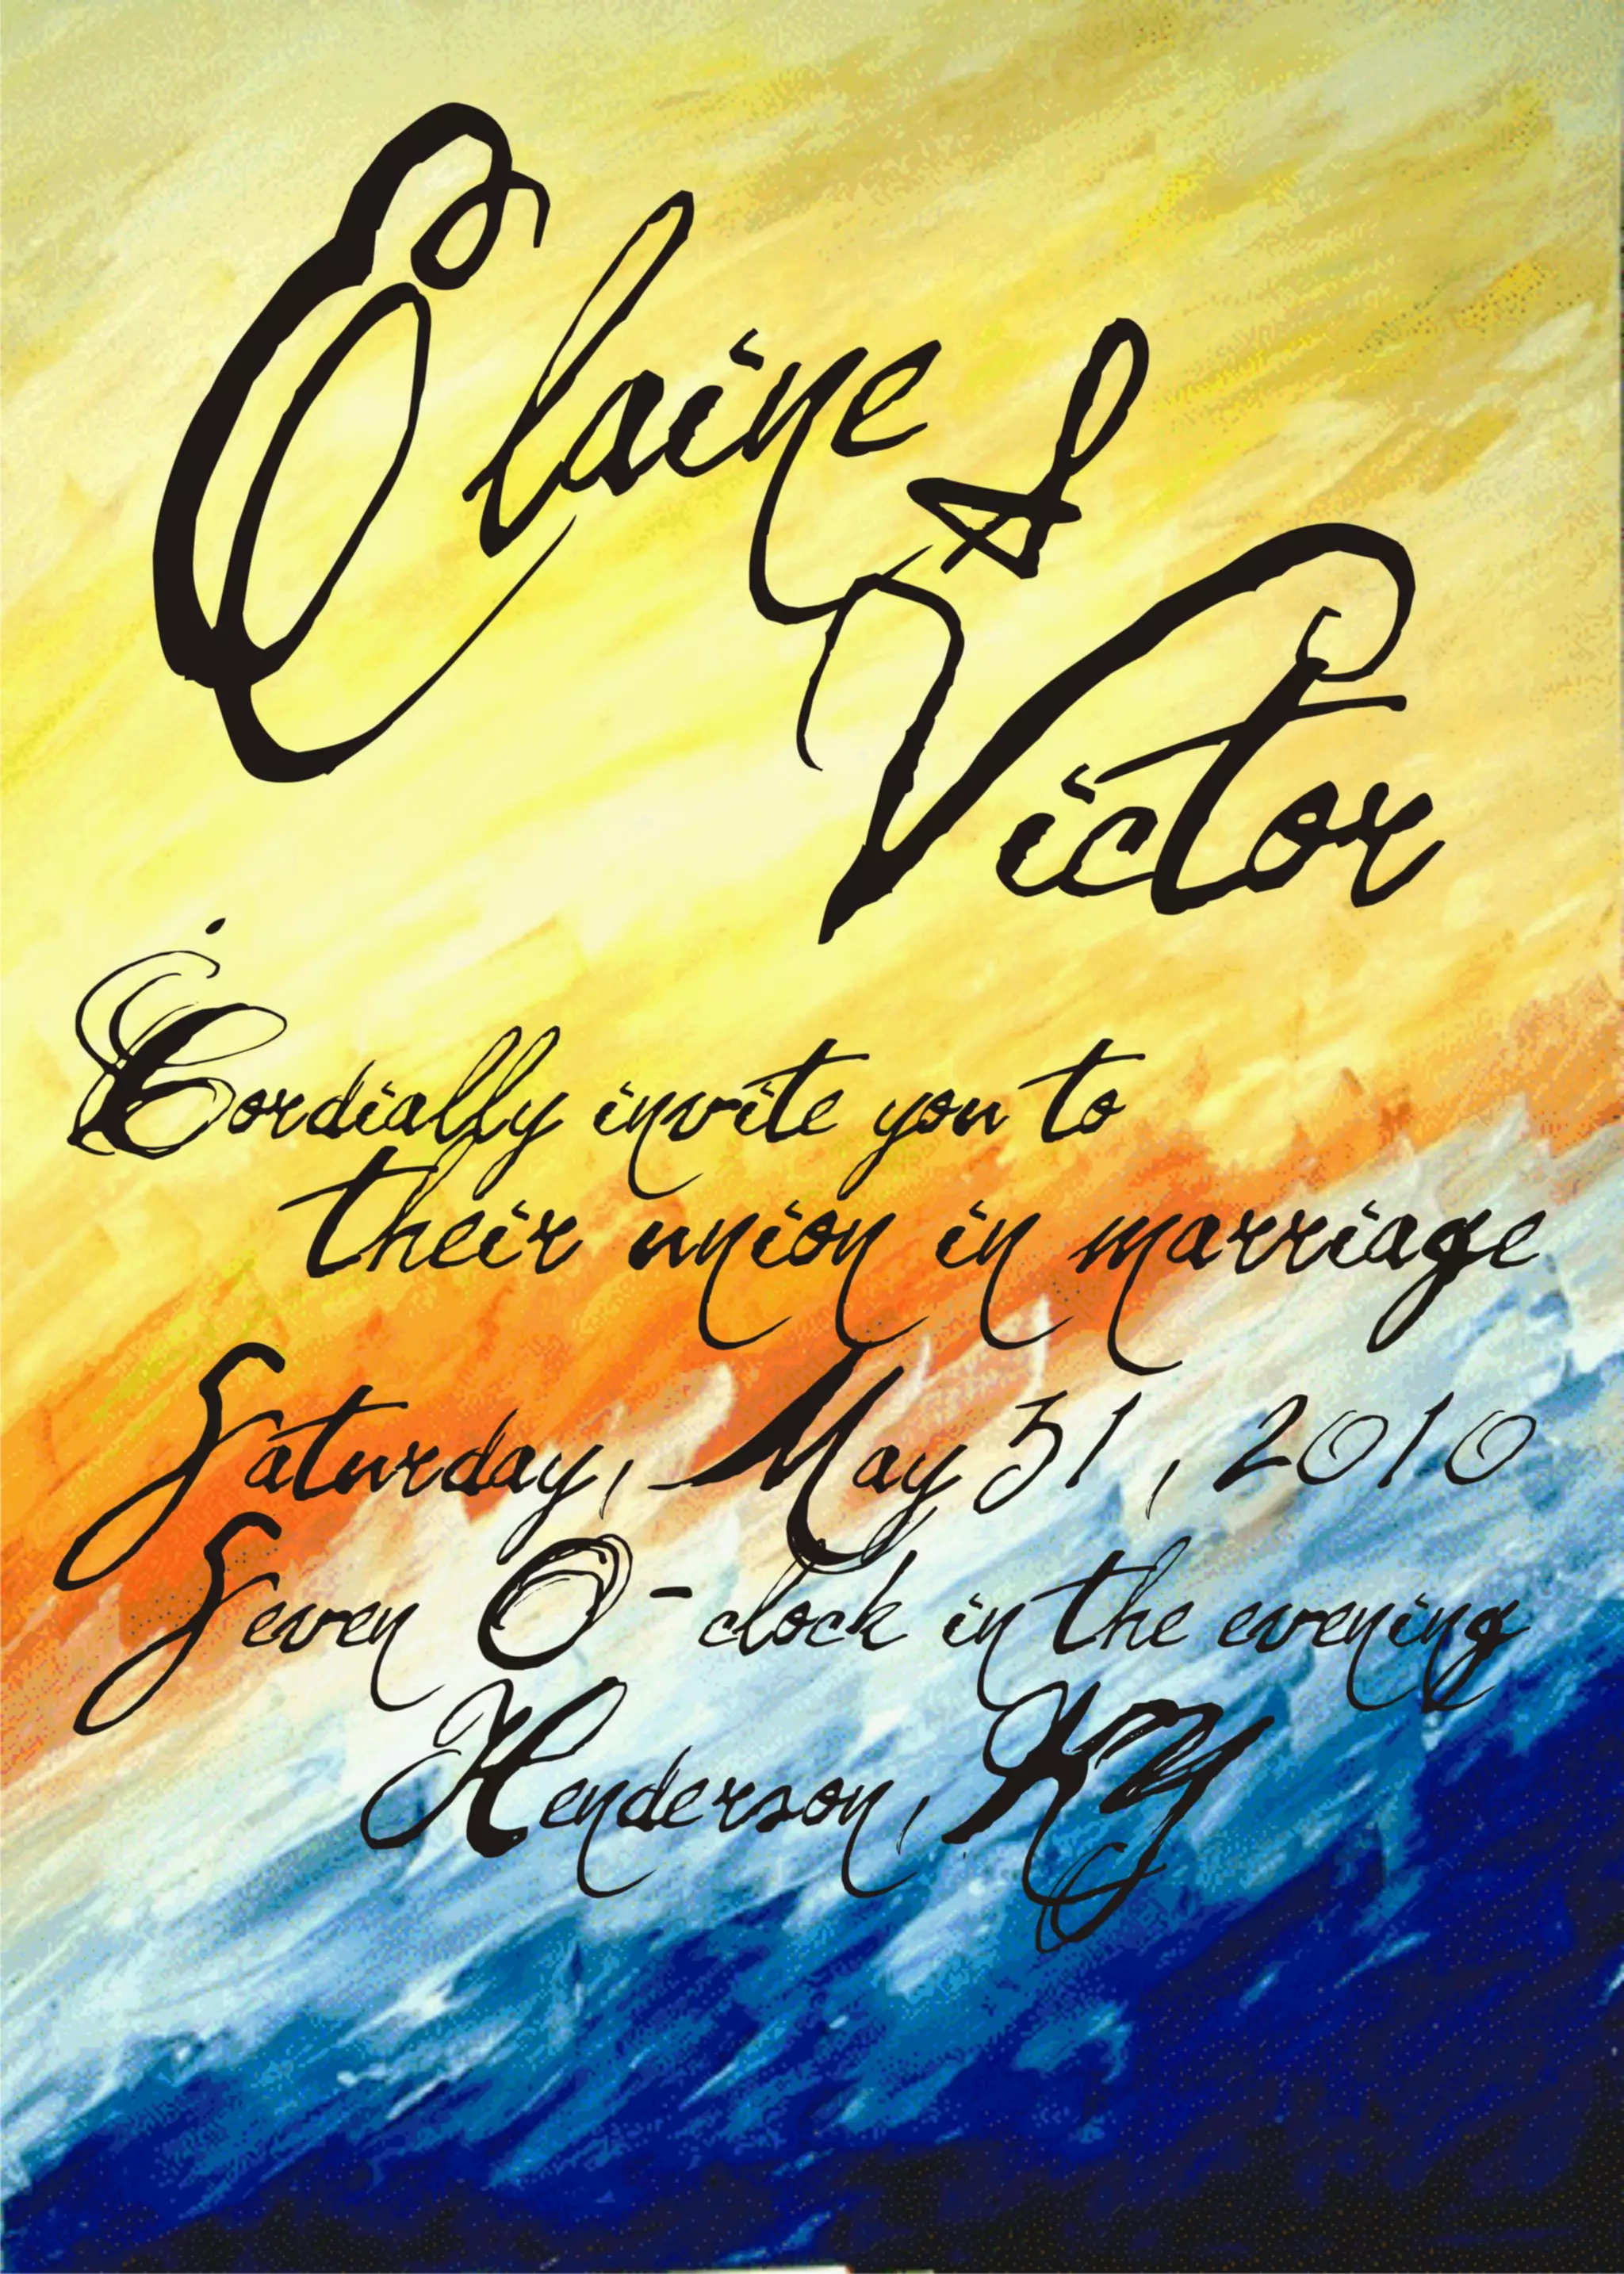 Elaine &
Victor
Cordially invite you to
their union in marriage
Saturday, May 31, 2010
Seven O-clock in the evening
Henderson, KY